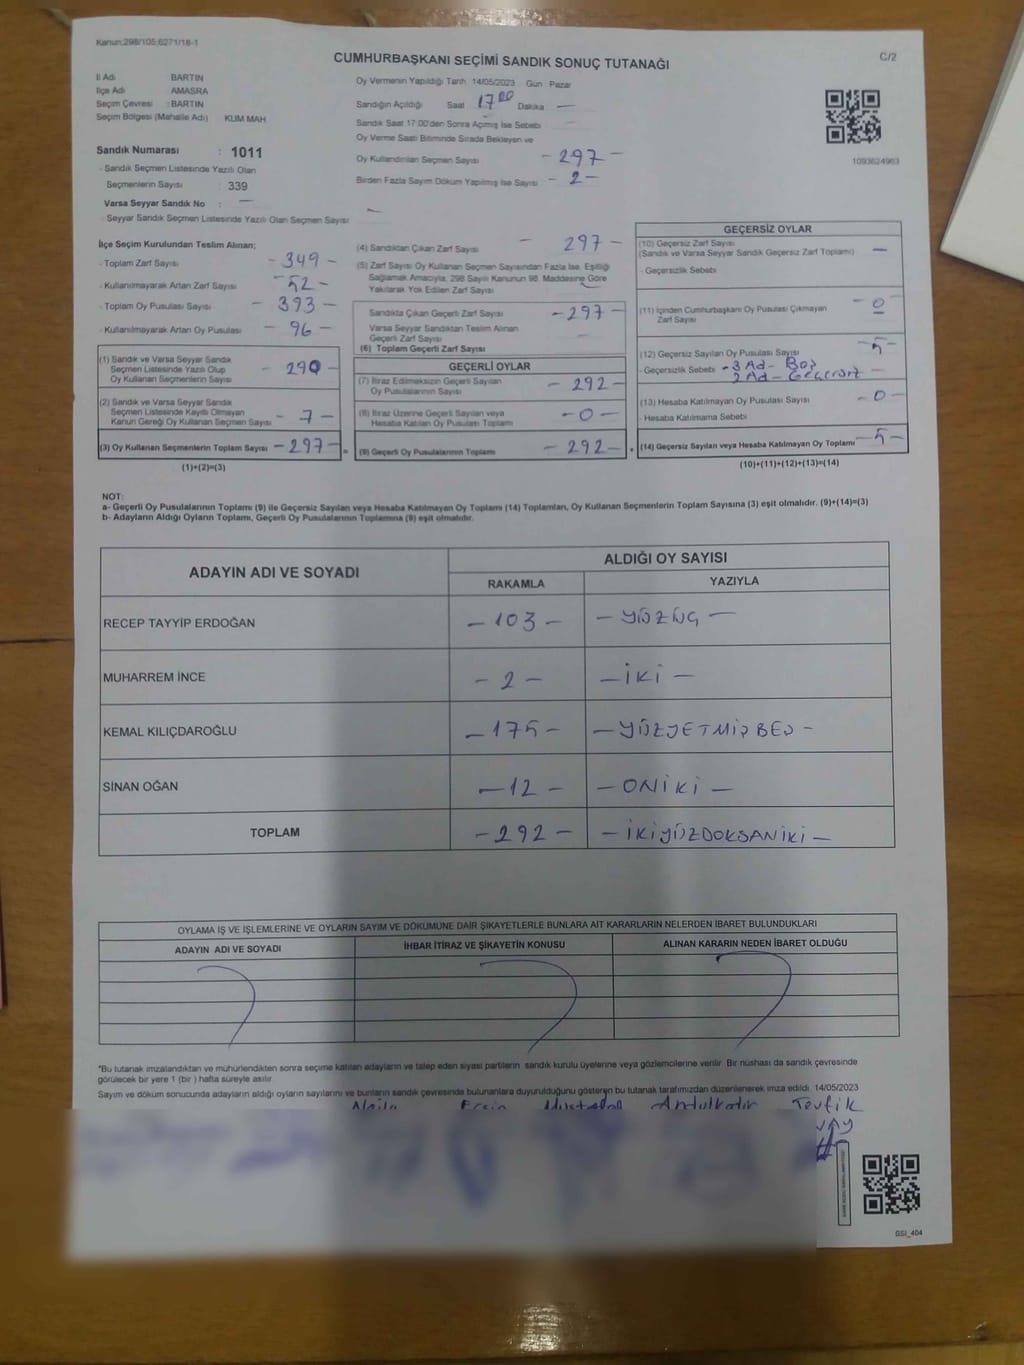 Kanun:298/105;6271/18-1
C/2
CUMHURBAŞKANI SEÇİMİ SANDIK SONUÇ TUTANAĞI
İl Adı BARTIN
İlçe Adı AMASRA
Seçim Çevresi : BARTIN
Seçim Bölgesi (Mahalle Adı) KUM MAH
Sandık Numarası : 1011
- Sandık Seçmen Listesinde Yazılı Olan
Seçmenlerin Sayısı : 339
Varsa Seyyar Sandık No : —
- Seyyar Sandık Seçmen Listesinde Yazılı Olan Seçmen Sayısı: —
Oy Vermenin Yapıldığı Tarih 14/05/2023 Gün Pazar
Sandığın Açıldığı Saat 17 00 Dakika —
Sandık Saat 17:00'den Sonra Açımış İse Sebebi
Oy Verme Saati Bitiminde Sırada Bekleyen ve
Oy Kullandırılan Seçmen Sayısı - 297 -
Birden Fazla Sayım Döküm Yapılmış İse Sayısı - 2 -
1093624963
İlçe Seçim Kurulundan Teslim Alınan;
- Toplam Zarf Sayısı - 349 -
- Kullanılmayarak Artan Zarf Sayısı - 52 -
- Toplam Oy Pusulası Sayısı - 393 -
- Kullanılmayarak Artan Oy Pusulası - 96 -
(1) Sandık ve Varsa Seyyar Sandık
Seçmen Listesinde Yazılı Olup
Oy Kullanan Seçmenlerin Sayısı - 290 -
(2) Sandık ve Varsa Seyyar Sandık
Seçmen Listesinde Kayıtlı Olmayan
Kanun Gereği Oy Kullanan Seçmen Sayısı - 7 -
(3) Oy Kullanan Seçmenlerin Toplam Sayısı - 297 -
(1)+(2)=(3)
(4) Sandıktan Çıkan Zarf Sayısı - 297 -
(5) Zarf Sayısı Oy Kullanan Seçmen Sayısından Fazla İse, Eşitliği
Sağlamak Amacıyla, 298 Sayılı Kanunun 98. Maddesine Göre
Yakılarak Yok Edilen Zarf Sayısı
Sandıkta Çıkan Geçerli Zarf Sayısı - 297 -
Varsa Seyyar Sandıktan Teslim Alınan
Geçerli Zarf Sayısı
(6) Toplam Geçerli Zarf Sayısı
GEÇERLİ OYLAR
(7) İtiraz Edilmeksizin Geçerli Sayılan
Oy Pusulalarının Sayısı - 292 -
(8) İtiraz Üzerine Geçerli Sayılan veya
Hesaba Katılan Oy Pusulaları Toplamı - 0 -
(9) Geçerli Oy Pusulalarının Toplamı - 292 -
GEÇERSİZ OYLAR
(10) Geçersiz Zarf Sayısı
(Sandık ve Varsa Seyyar Sandık Geçersiz Zarf Toplamı) —
- Geçersizlik Sebebi
(11) İçinden Cumhurbaşkanı Oy Pusulası Çıkmayan
Zarf Sayısı - 0 -
(12) Geçersiz Sayılan Oy Pusulası Sayısı - 5 -
- Geçersizlik Sebebi - 3 Ad - Boş
2 Ad - Geçersiz
(13) Hesaba Katılmayan Oy Pusulası Sayısı - 0 -
- Hesaba Katılmama Sebebi
(14) Geçersiz Sayılan veya Hesaba Katılmayan Oy Toplamı - 5 -
(10)+(11)+(12)+(13)=(14)
NOT:
a- Geçerli Oy Pusulalarının Toplamı (9) ile Geçersiz Sayılan veya Hesaba Katılmayan Oy Toplamı (14) Toplamları, Oy Kullanan Seçmenlerin Toplam Sayısına (3) eşit olmalıdır. (9)+(14)=(3)
b- Adayların Aldığı Oyların Toplamı, Geçerli Oy Pusulalarının Toplamına (9) eşit olmalıdır.
ADAYIN ADI VE SOYADI ALDIĞI OY SAYISI
RAKAMLA YAZIYLA
RECEP TAYYİP ERDOĞAN - 103 - - YÜZÜÇ -
MUHARREM İNCE - 2 - - İKİ -
KEMAL KILIÇDAROĞLU - 175 - - YÜZYETMİŞBEŞ -
SİNAN OĞAN - 12 - - ONİKİ -
TOPLAM - 292 - - İKİYÜZDOKSANİKİ -
OYLAMA İŞ VE İŞLEMLERİNE VE OYLARIN SAYIM VE DÖKÜMÜNE DAİR ŞİKAYETLERLE BUNLARA AİT KARARLARIN NELERDEN İBARET BULUNDUKLARI
ADAYIN ADI VE SOYADI İHBAR İTİRAZ VE ŞİKAYETİN KONUSU ALINAN KARARIN NEDEN İBARET OLDUĞU
*Bu tutanak imzalandıktan ve mühürlendikten sonra seçime katılan adayların ve talep eden siyasi partilerin, sandık kurulu üyelerine veya gözlemcilerine verilir. Bir nüshası da sandık çevresinde
görülecek bir yere 1 (bir) hafta süreyle asılır.
Sayım ve döküm sonucunda adayların aldığı oyların sayılarını ve bunların sandık çevresinde bulunanlara duyurulduğunu gösteren bu tutanak tarafımızdan düzenlenerek imza edildi. 14/05/2023
Ersin Mustafa Abdulkadir Tevfik
GSİ_404